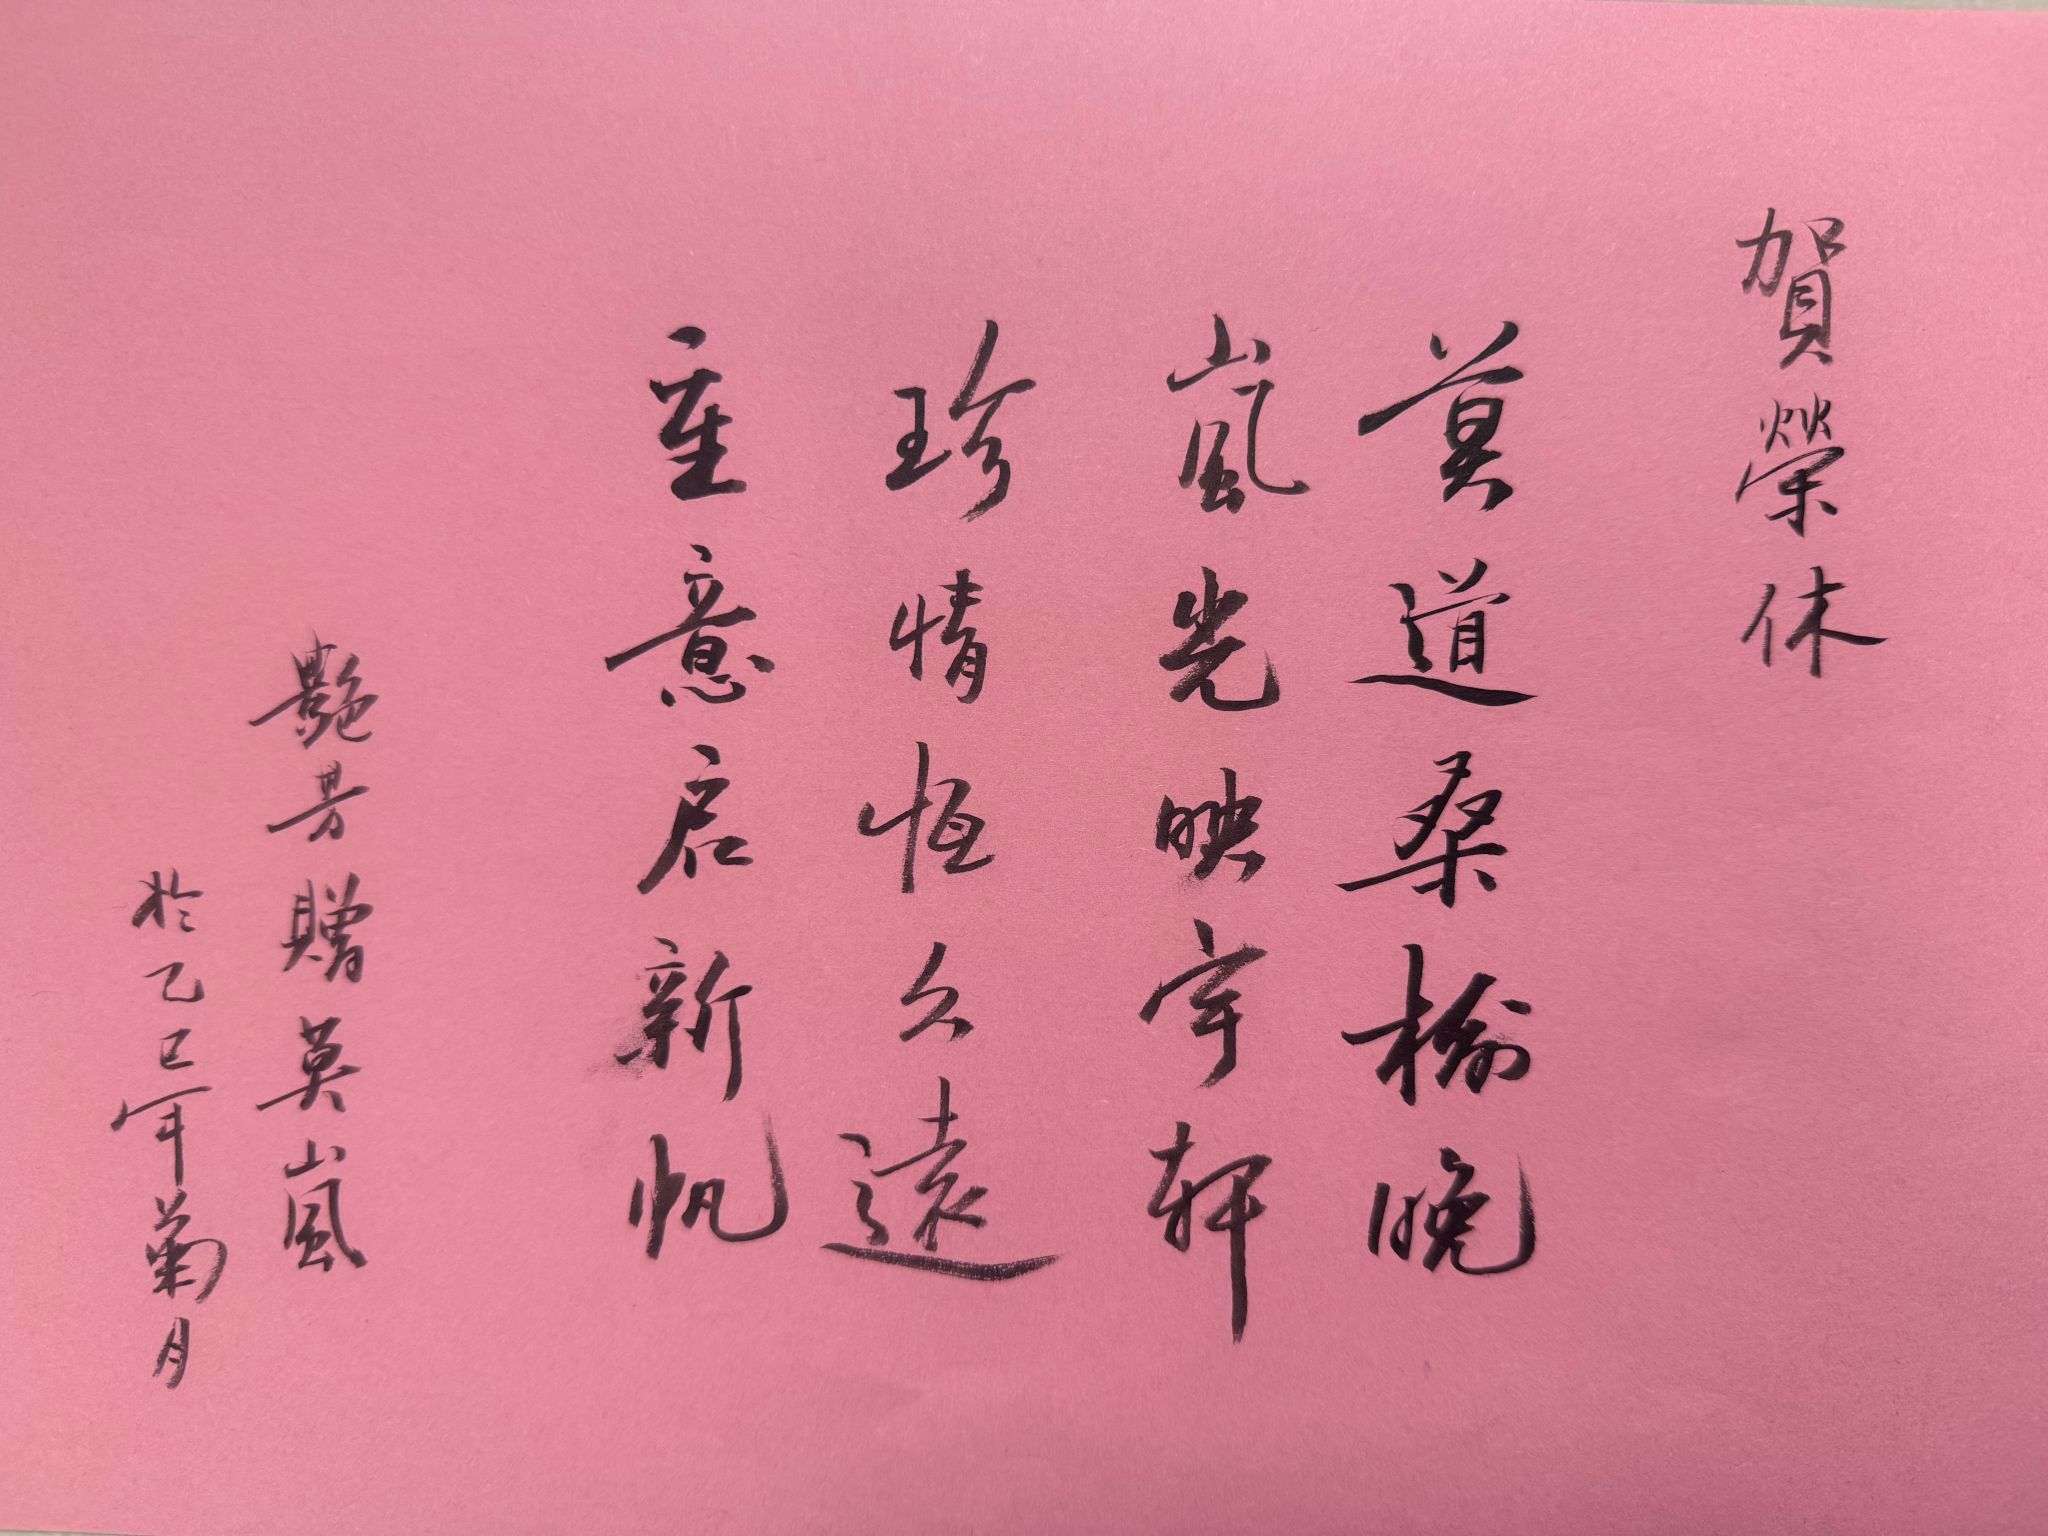 賀榮休
莫道桑榆晚
嵐光映宇軒
珍情恒久遠
重意启新帆
艷芳贈莫嵐
於乙巳年菊月